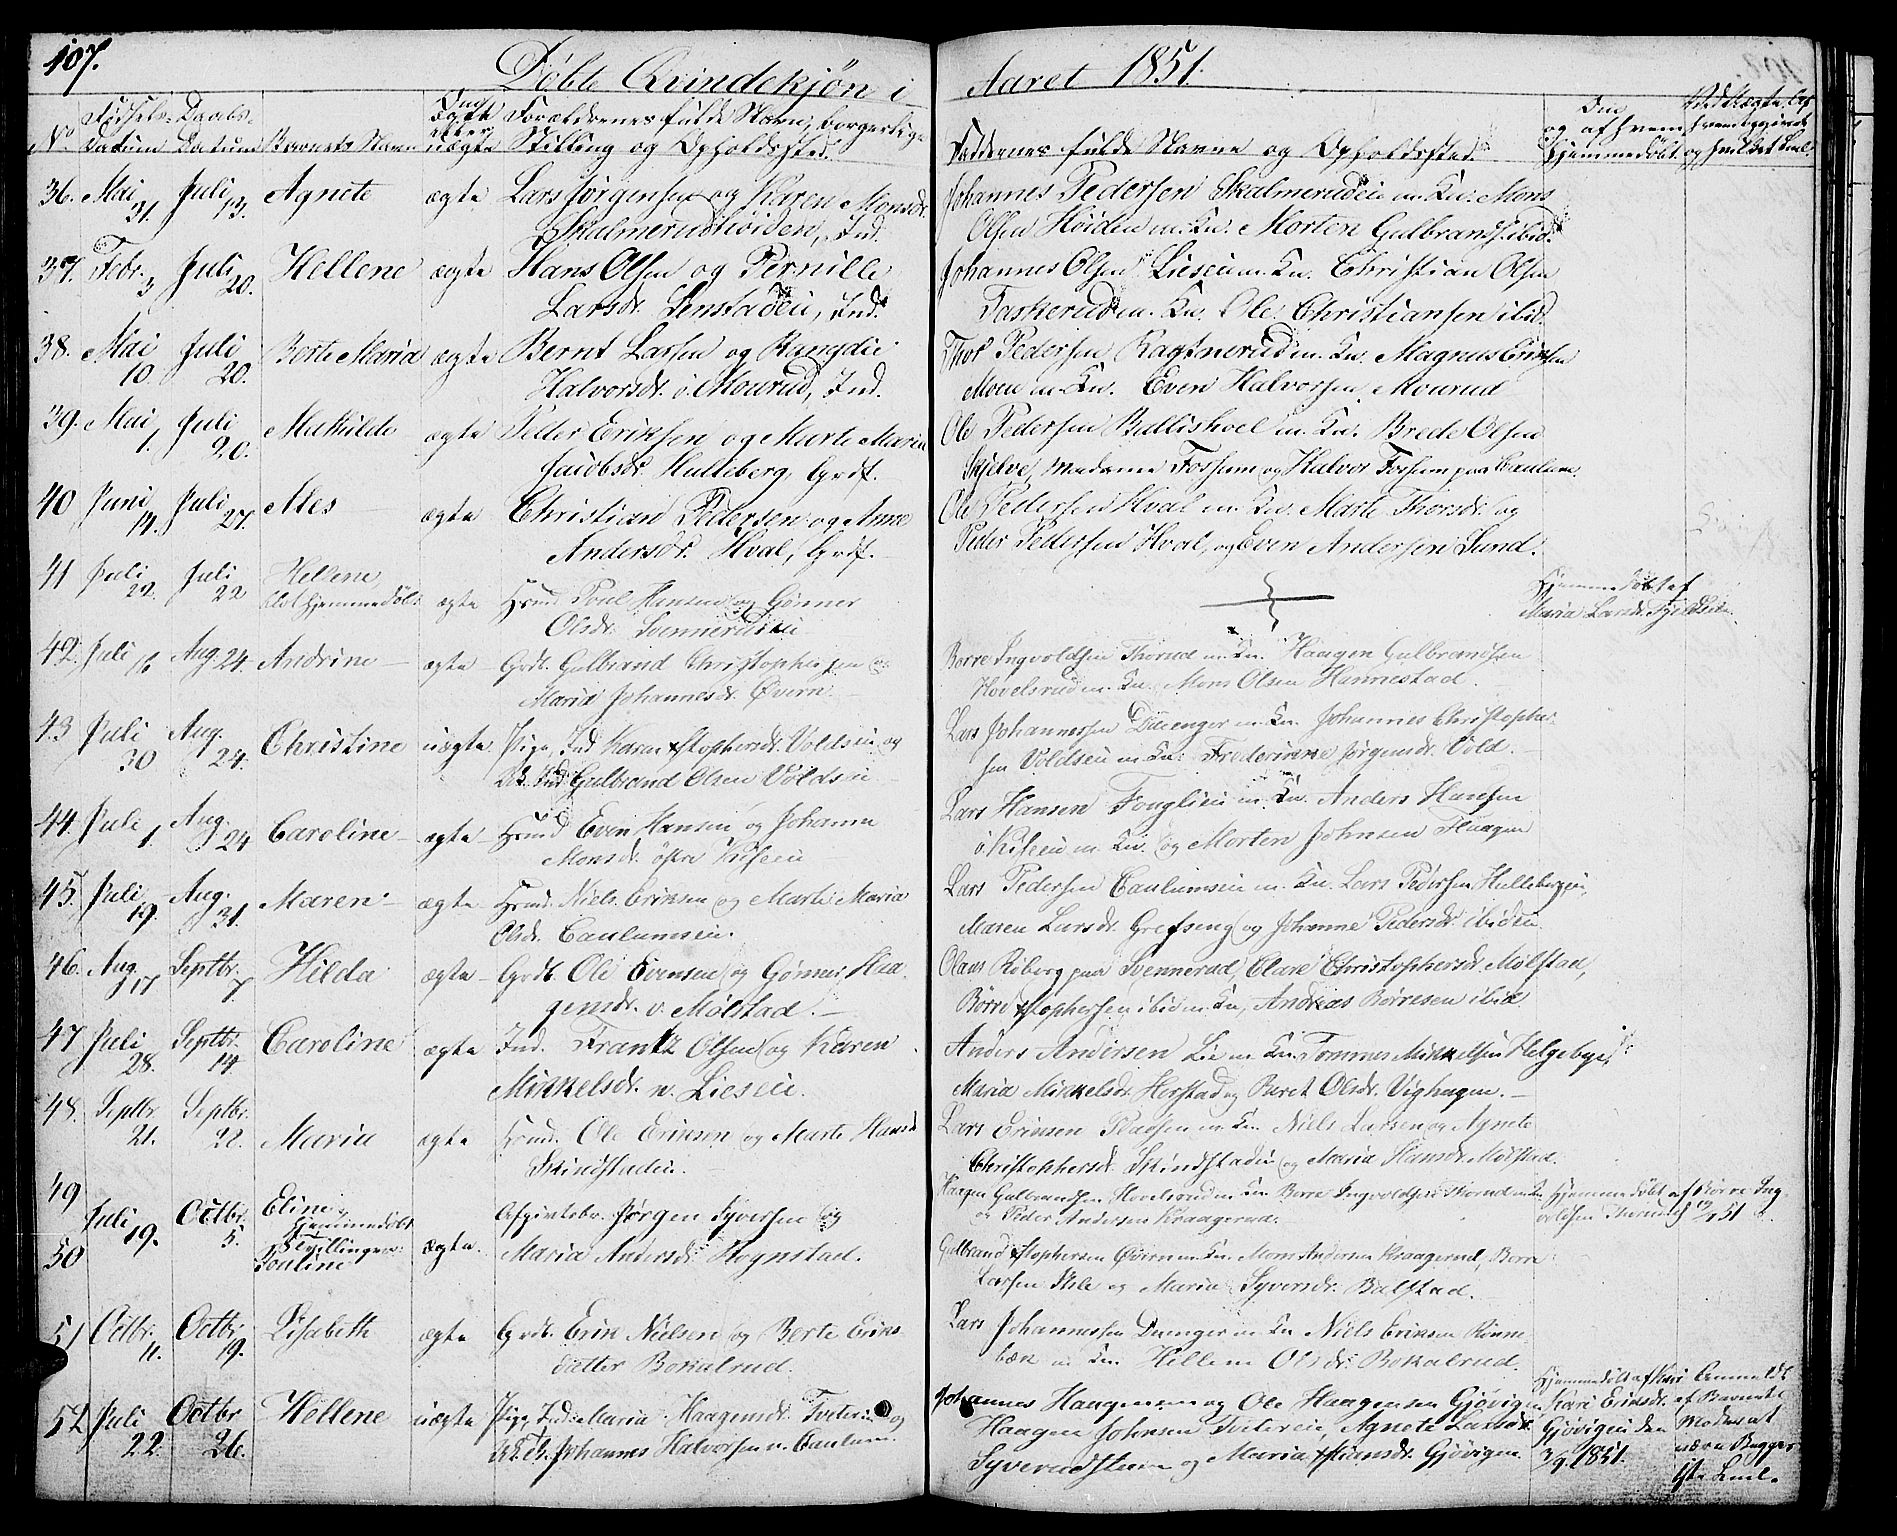 107.
Døbte Qvindekjøn i Aaret 1851.
No Fødsels- Datum Daabs- Datum Barnets Navn Om ægte eller uægte Forældrenes fulde Navn, borgerlige Stilling og Opholdssted. Faddernes fulde Navne og Opholdssted. Om og af hvem hjemmedøbt.
36. Mai 31. Juli 13. Agnete ægte Lars Jørgensen og Karen Monsdr.
Skalmerudhøiden, Ind.
Johannes Pedersen Skalmerudeie m. Kn. Mons
Olsen Høiden m. Kn. Morten Gulbrands. ibid.
37. Febr. 3 Juli 20. Hellene ægte Hans Olsen og Pernille
Larsdr. Senstadeie, Ind.
Johannes Olsen Lieseie m. Kn. Christian Olsen
Taskerud m. Kn. Ole Christiansen ibid.
38. Mai 10. Juli 20. Berte Maria ægte Bernt Larsen og Rangdie
Halvorsdr. ø. Mourud, Ind.
Thor Pedersen Ragtnerud m. Kn. Magnus Eriksen
Moen m. Kn. Even Halvorsen Mourud
39. Mai 1. Juli 20. Mathilde ægte Peder Eriksen og Marte Maria
Jacobsdr. Hulleberg, Grdf.
Ole Pedersen Ballishoel m. Kn. Brede Olsen
Skjelve, Madame Forsum og Halvor Forsum paa Caulum.
40 Juni 14. Juli 27. Ales ægte Christian Pedersen og Anne
Andersdr. Hval, Grdf.
Ole Pedersen Hval m. Kn. Marte Thorsdr. og
Peder Pedersen Hval, og Even Andersen Sund.
41 Juli 22. Juli 22 Hellene
blot hjemmedøbt ægte Hsmd. Poul Hansen og Gønner
Olsdr. Svennerudeie
Hjemmedøbt af
Maria Larsdr.
42. Juli 16 Aug. 24. Andrine ægte Grdb. Gulbrand Christophersen og
Maria Johannesdr. Øvern
Børre Ingvoldsen Thorud m. Kn. Haagen Gulbrandsen
Hovelsrud m. Kn. Mons Olsen Hannestad.
43 Juli 30 Aug. 24. Christine uægte Pige Ind. Karen Xstophersdr. Voldseie og
Gulbrand Olsen Voldseie
Lars Johannessen Duenger m. Kn. Johannes Christopher-
sen Voldseie m. Kn. Frederikke Jørgensdr. Vold.
44. Juli 1. Aug. 24 Caroline ægte Hsmd. Even Hansen og Johanne
Monsdr. østre Kiseeie
Lars Hansen Fouglieie m. Kn. Anders Hansen
ø. Kiseeie m. Kn. og Morten Johnsen Haagen
45. Juli 19. Aug. 31. Maren ægte Hsmd. Niels Eriksen og Marte Maria
Olsdr. Caulumseie.
Lars Pedersen Caulumseie m. Kn. Lars Pedersen Hullebergeie,
Maren Larsdr. Grefseng og Johanne Pedersdr. ibid.
46. Aug. 17 Septbr. 7 Hilda ægte Grdb. Ole Evensen og Gønner Haa-
gensdr. v. Mølstad.
Olaus Roberg paa Svennerud, Clare Christophersdr. Mølstad,
Børre Xstophersen ibid m. Kn. Andreas Børresen ibid
47 Juli 28. Septbr. 14 Caroline ægte Ind. Frantz Olsen og Karen
Mikkelsdr. n. Lieseie.
Anders Andersen Lie m. Kn. Tommes Mikkelsen Helgebye,
Maria Mikkelsdr. Herstad og Buret Olsdr. Vighagen.
48. Septbr. 21. Septbr. 28. Maria ægte Hsmd. Ole Eriksen og Marte Hansd.
Skindstadeie.
Lars Eriksen Pladsen m. Kn. Niels Larsen og Agnete
Christophersdr. Skindstadeie og Maria Hansdr. Mølstad.
49 Juli 19. Octbr. 5. Eline,
Hjemmedøbt
Tvillinger
50 Pouline
ægte. Afgivtsbr. Jørgen Syversen og
Maria Andersdr. Hognstad.
Haagen Gulbrandsen Hovelsrud m. Kn. Børre Ingvoldsen Thorud m. Kn.
og Peder Andersen Kraagerud.
Hjemmedøbt af Børre Ing-
voldsen Thorud 51
Gulbrand Xstophersen Øvern m. Kn. Mons Andersen Kraagerud, Børre
Larsen Hele og Maria Syversdr. Balstad.
51 Octbr. 11. Octbr. 19. Lisabeth ægte Grdb. Erik Nielsen og Berte Eriks
datter Bokalrud.
Lars Johannessen Duenger m. Kn. Niels Eriksen Rønne-
bæk m. Kn. Hellene Olsdr. Bokalrud.
52 Juli 22. Octbr. 26. Hellene uægte Pige Ind. Maria Haagensdr. Tveterie og
Johannes Halvorsen v. Caulum.
Johannes Haagensen og Ole Haagensen Gjøvigen
Haagen Johnsen Tvetereie, Agnete Larsdr.
Syverudsteen og Maria Hansdr. Gjøvigen.
Hjemmedøbt af
Kari Eriksdr.
Gjøvigen den
3/9 1851.
Anmeldt
af Barnets
Moder at
være Begges
1ste Leiel.